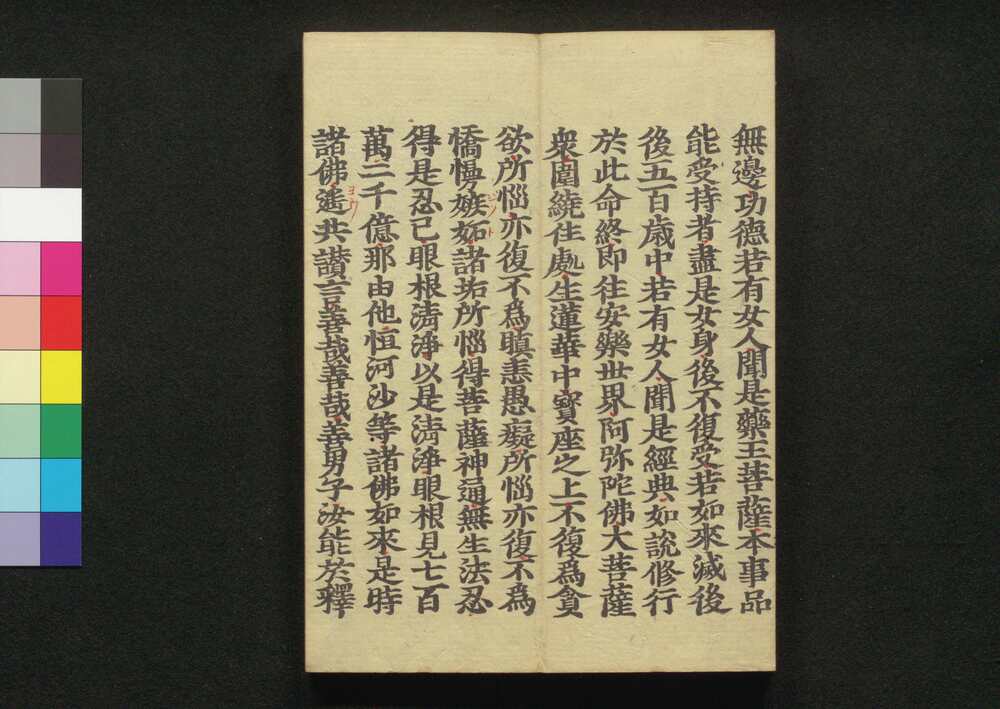 無邊功德若有女人聞是藥王菩薩本事品
能受持者盡是女身後不復受若如來滅後
後五百歳中若有女人聞是經典如說修行
於此命終即往安樂世界阿弥陀佛大菩薩
衆圍繞住處生蓮華中寳座之上不復為貪
欲所惱亦復不為瞋恚愚癡所惱亦復不為
憍慢嫉妬諸垢所惱得菩薩神通無生法忍
得是忍已眼根清淨以是清淨眼根見七百
萬二千億那由他恒河沙等諸佛如來是時
諸佛遙共讃言善哉善哉善男子汝能於釋